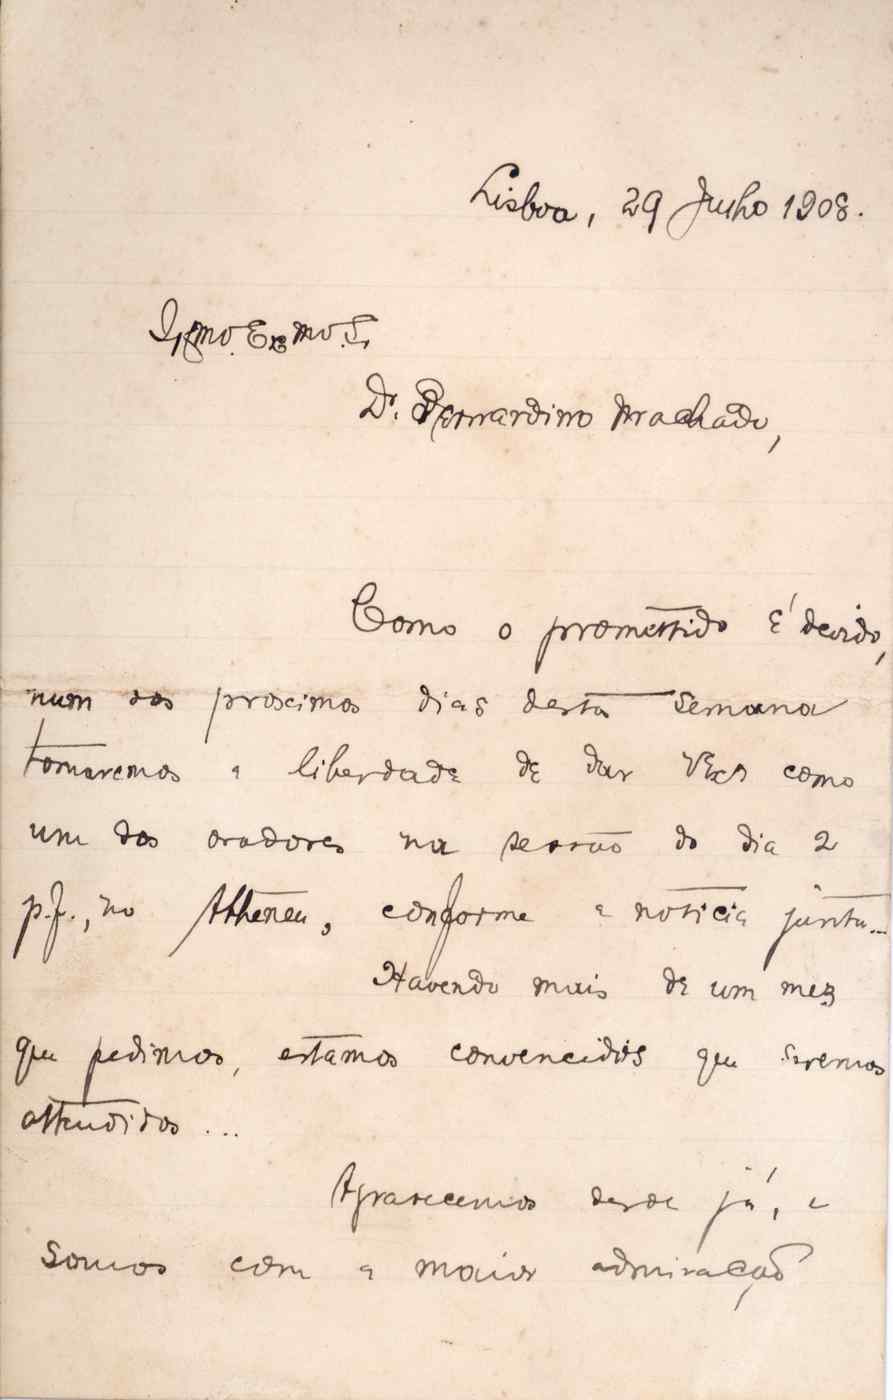 Lisboa, 29 Julho 1908.
Illmo. Exmo. Sr.
Dr. Bernardino Machado,
Como o promettido é devido,
num dos proximos dias desta semana
tomaremos a liberdade de dar VExa como
um dos oradores na sessão do dia 2
p.f., no Atheneu, conforme a noticia junta...
Havendo mais de um mez
que pedimos, estamos convencidos que seremos
attendidos ...
Agradecemos desde já, e
somos com a maior admiração